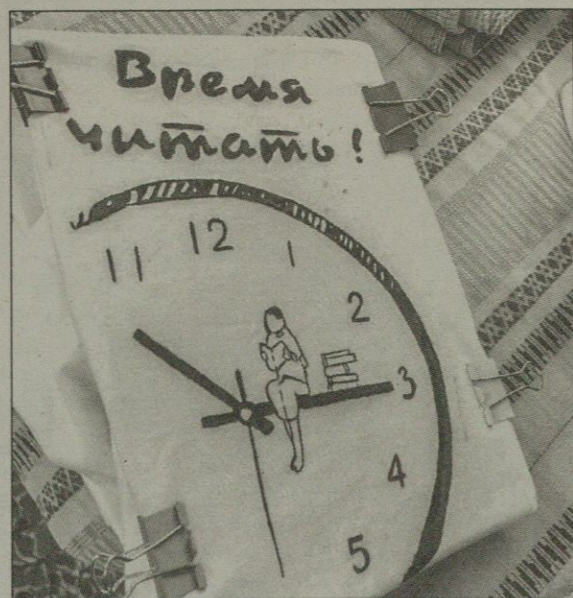 Время
читать!
11 12 1
2
3
4
5